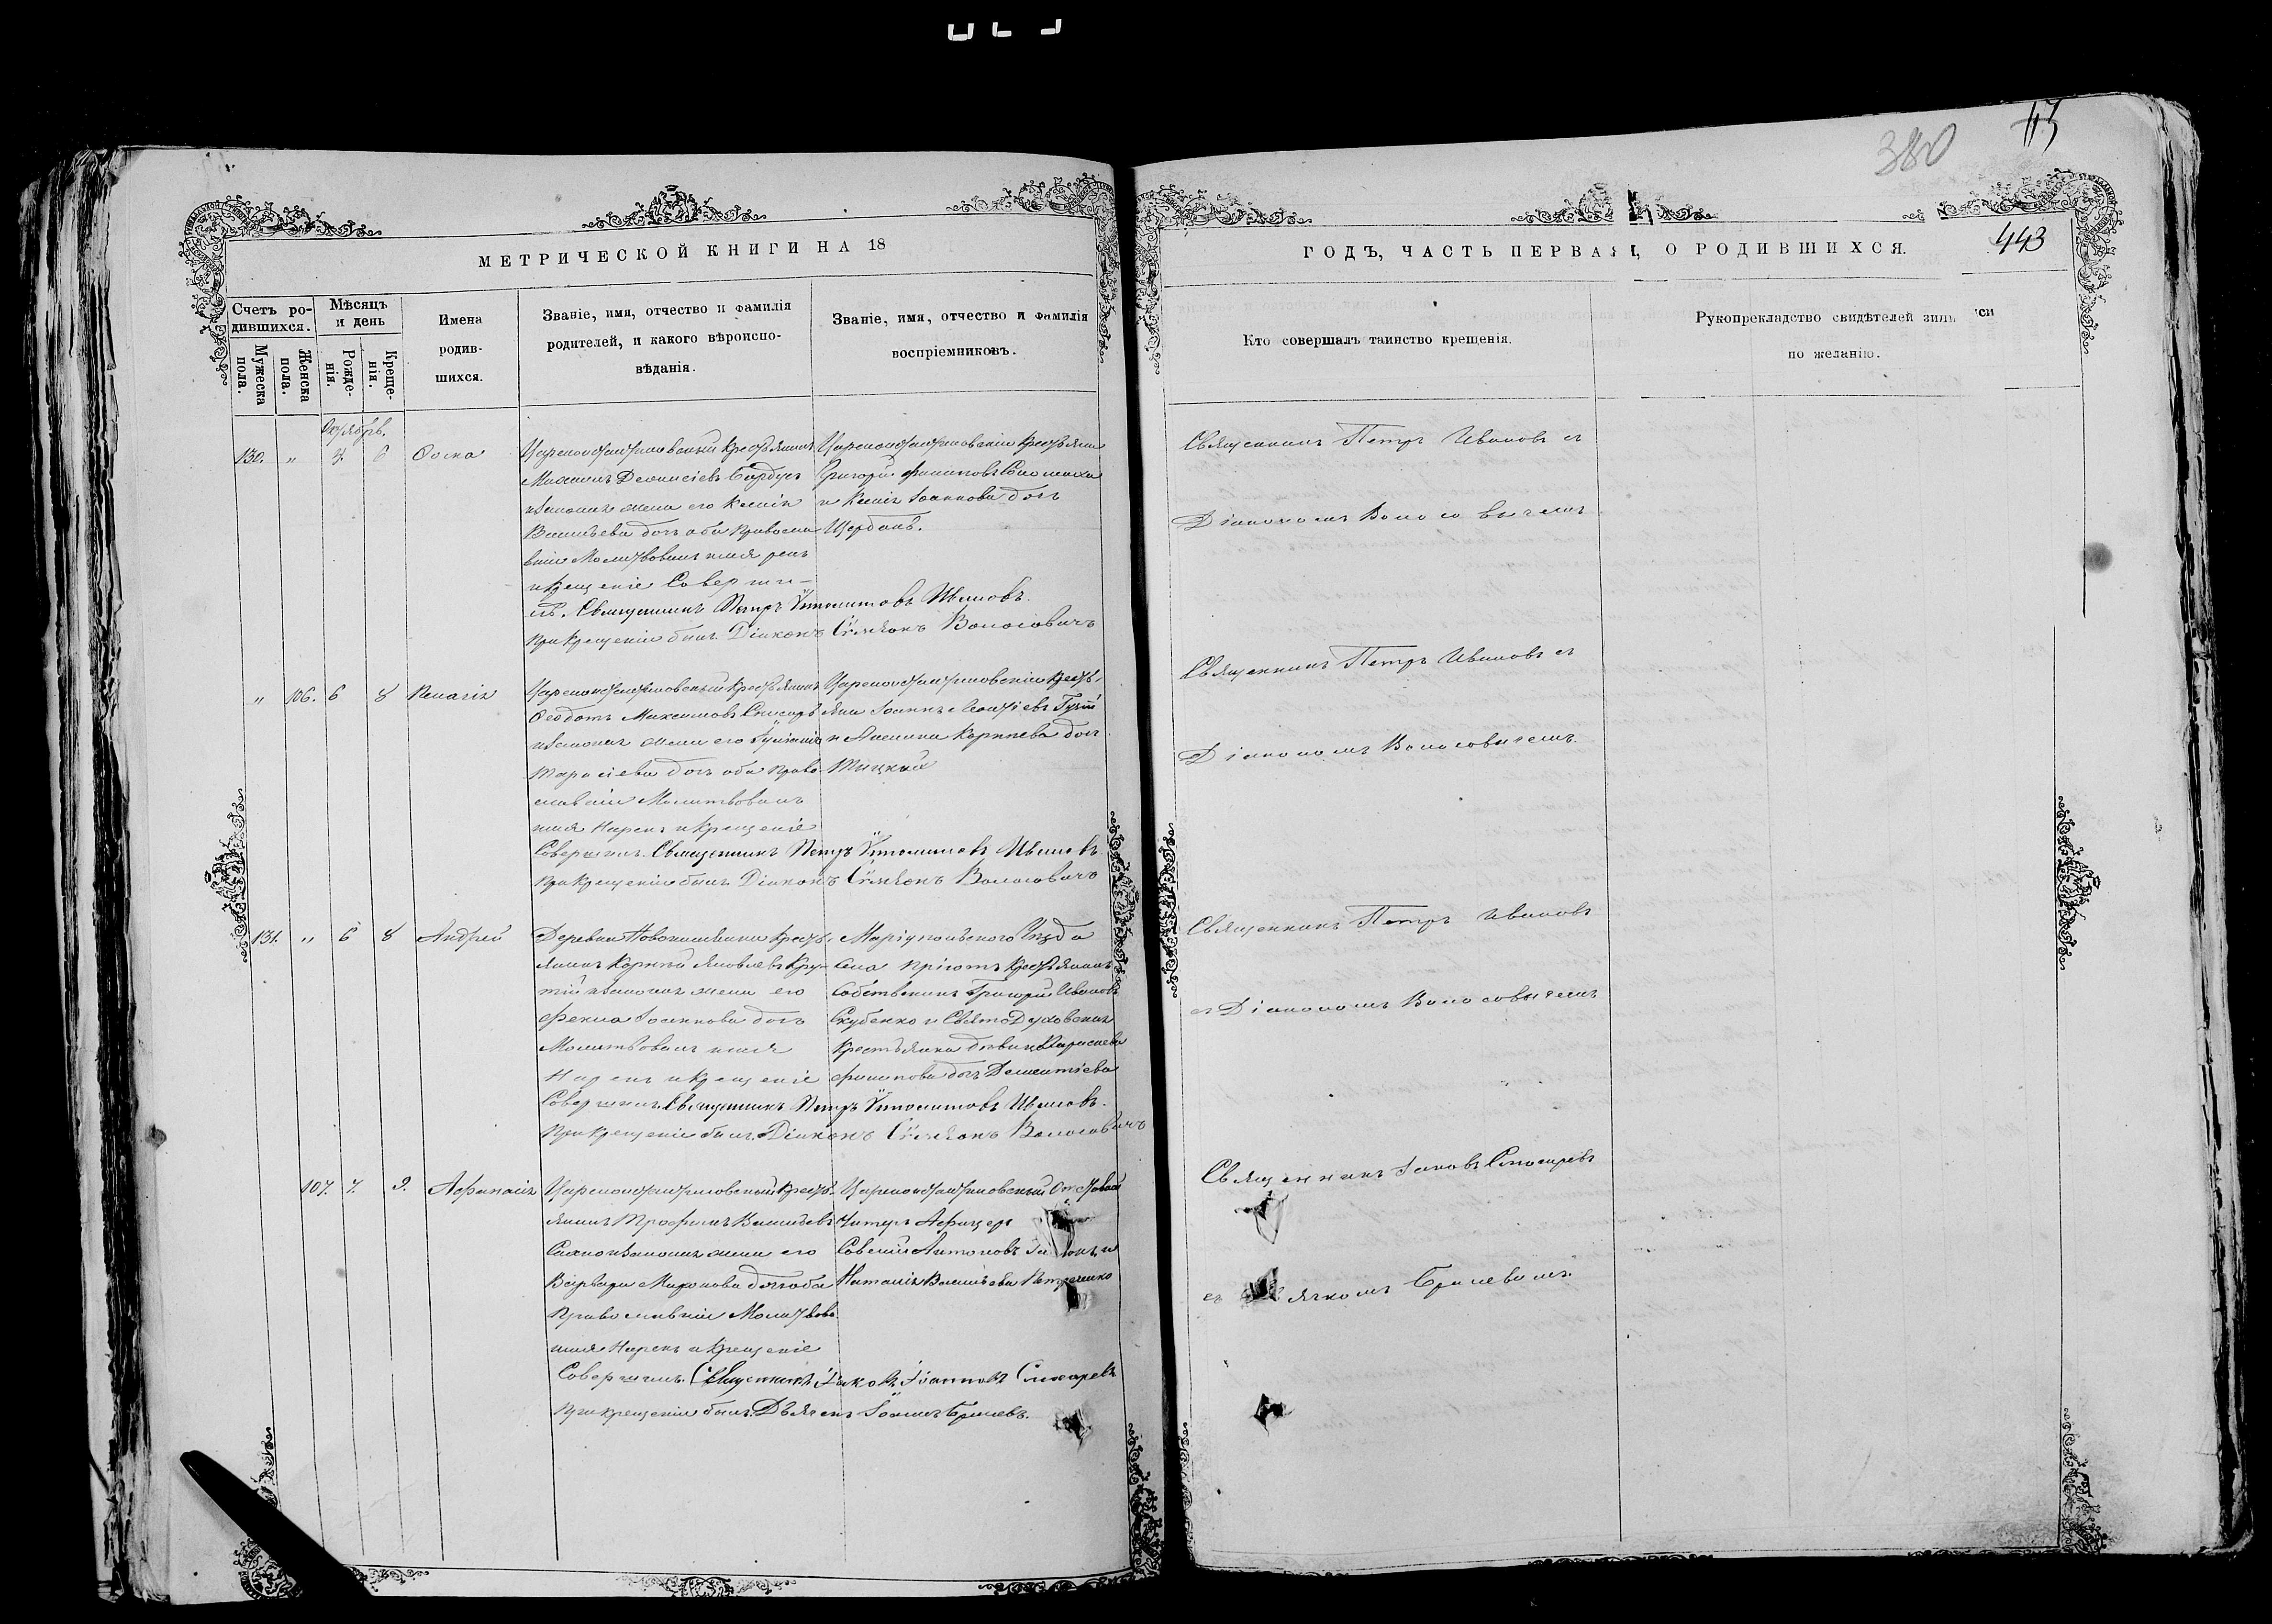 380
113
МЕТРИЧЕСКОЙ КНИГИ НА 18
ГОДЪ, ЧАСТЬ ПЕРВАЯ, О РОДИВШИХСЯ.
443
Счетъ ро-
дившихся.
Мужеска
пола.
Женска
пола.
Мѣсяцъ
и день
Рожде-
нія.
Креще-
нія.
Имена
родив-
шихся.
Званіе, имя, отчество и фамилія
родителей, и какого вѣроиспо-
вѣданія.
Званіе, имя, отчество и фамилія
воспріемниковъ.
Кто совершалъ таинство крещенія.
Рукоприкладство свидѣтелей
по желанію.
Октябрь.
130. „ 4. 6
Цареконстантиновскій Крестьянинъ
Михаилъ Деонисіевъ
изаконая жена его Ксенія
Васильева дочь оба Правосла
вніи Молитвовалъ имя рекъ
и Крещеніе Соверши-
лъ. Священникъ Петръ Ипполитовъ Ивановъ.
При Крещеніи былъ Діаконъ Симеонъ Волосовичъ
Цареконстантиновскіи Крестьяне
Григорій Филиповъ
и Ксенія Іоаннова дочь
Щербакъ.
Священникъ Петръ Ивановъ съ
Діакономъ Волосовичемъ
„ 106. 6 8 Пелагія
Цареконстантиновскій Крестьянинъ
Ѳеодотъ Максимовъ
изаконая жена его Іуліанія
Тарасіева дочь оба Право
славніи Молитвовалъ
имя Нарекъ и Крещеніе
Совершилъ. Священникъ Петръ Ипполитовъ Ивановъ.
При Крещеніи былъ Діаконъ Симеонъ Волосовичъ
Цареконстантиновскіи Кресть-
яне Іоаннъ
и Акилина Корніева дочь
Священникъ Петръ Ивановъ съ
Діакономъ Волосовичемъ.
131. „ 6 8 Андрей
Деревни Кресть-
янинъ Корній Яковлевъ Кру-
тій изаконая жена его
Фекла Іоаннова дочь
Молитвовалъ имя
Нарекъ и Крещеніе
Совершилъ. Священникъ Петръ Ипполитовъ Ивановъ.
При Крещеніи былъ. Діаконъ Симеонъ Волосовичъ
Маріупольского Уѣзда
Села Пріютъ Крестьянинъ
Собственикъ Григорій Ивановъ
Скубенко и СвятоДуховская
Крестьянка дѣвица
Филипова дочь Дементіева
Священникъ Петръ Ивановъ
съ Діакономъ Волосовичемъ
107. 7. 9. Афанасія
Цареконстантиновскій Кресть-
янинъ Трофимъ Васильевъ
изаконая жена его
Варвара Миронова дочь оба
Православніи Молитвова
имя Нарекъ и Крещеніе
Совершилъ. Священникъ Іаковъ Іоанновъ Слюсаревъ
При крещеніи былъ. Дьячекъ Іоанъ Брилевъ.
Цареконстантиновскій Отставной
Антоновъ
Наталія Васильева
Священникъ Іаковъ Слюсаревъ
съ Брилевымъ.